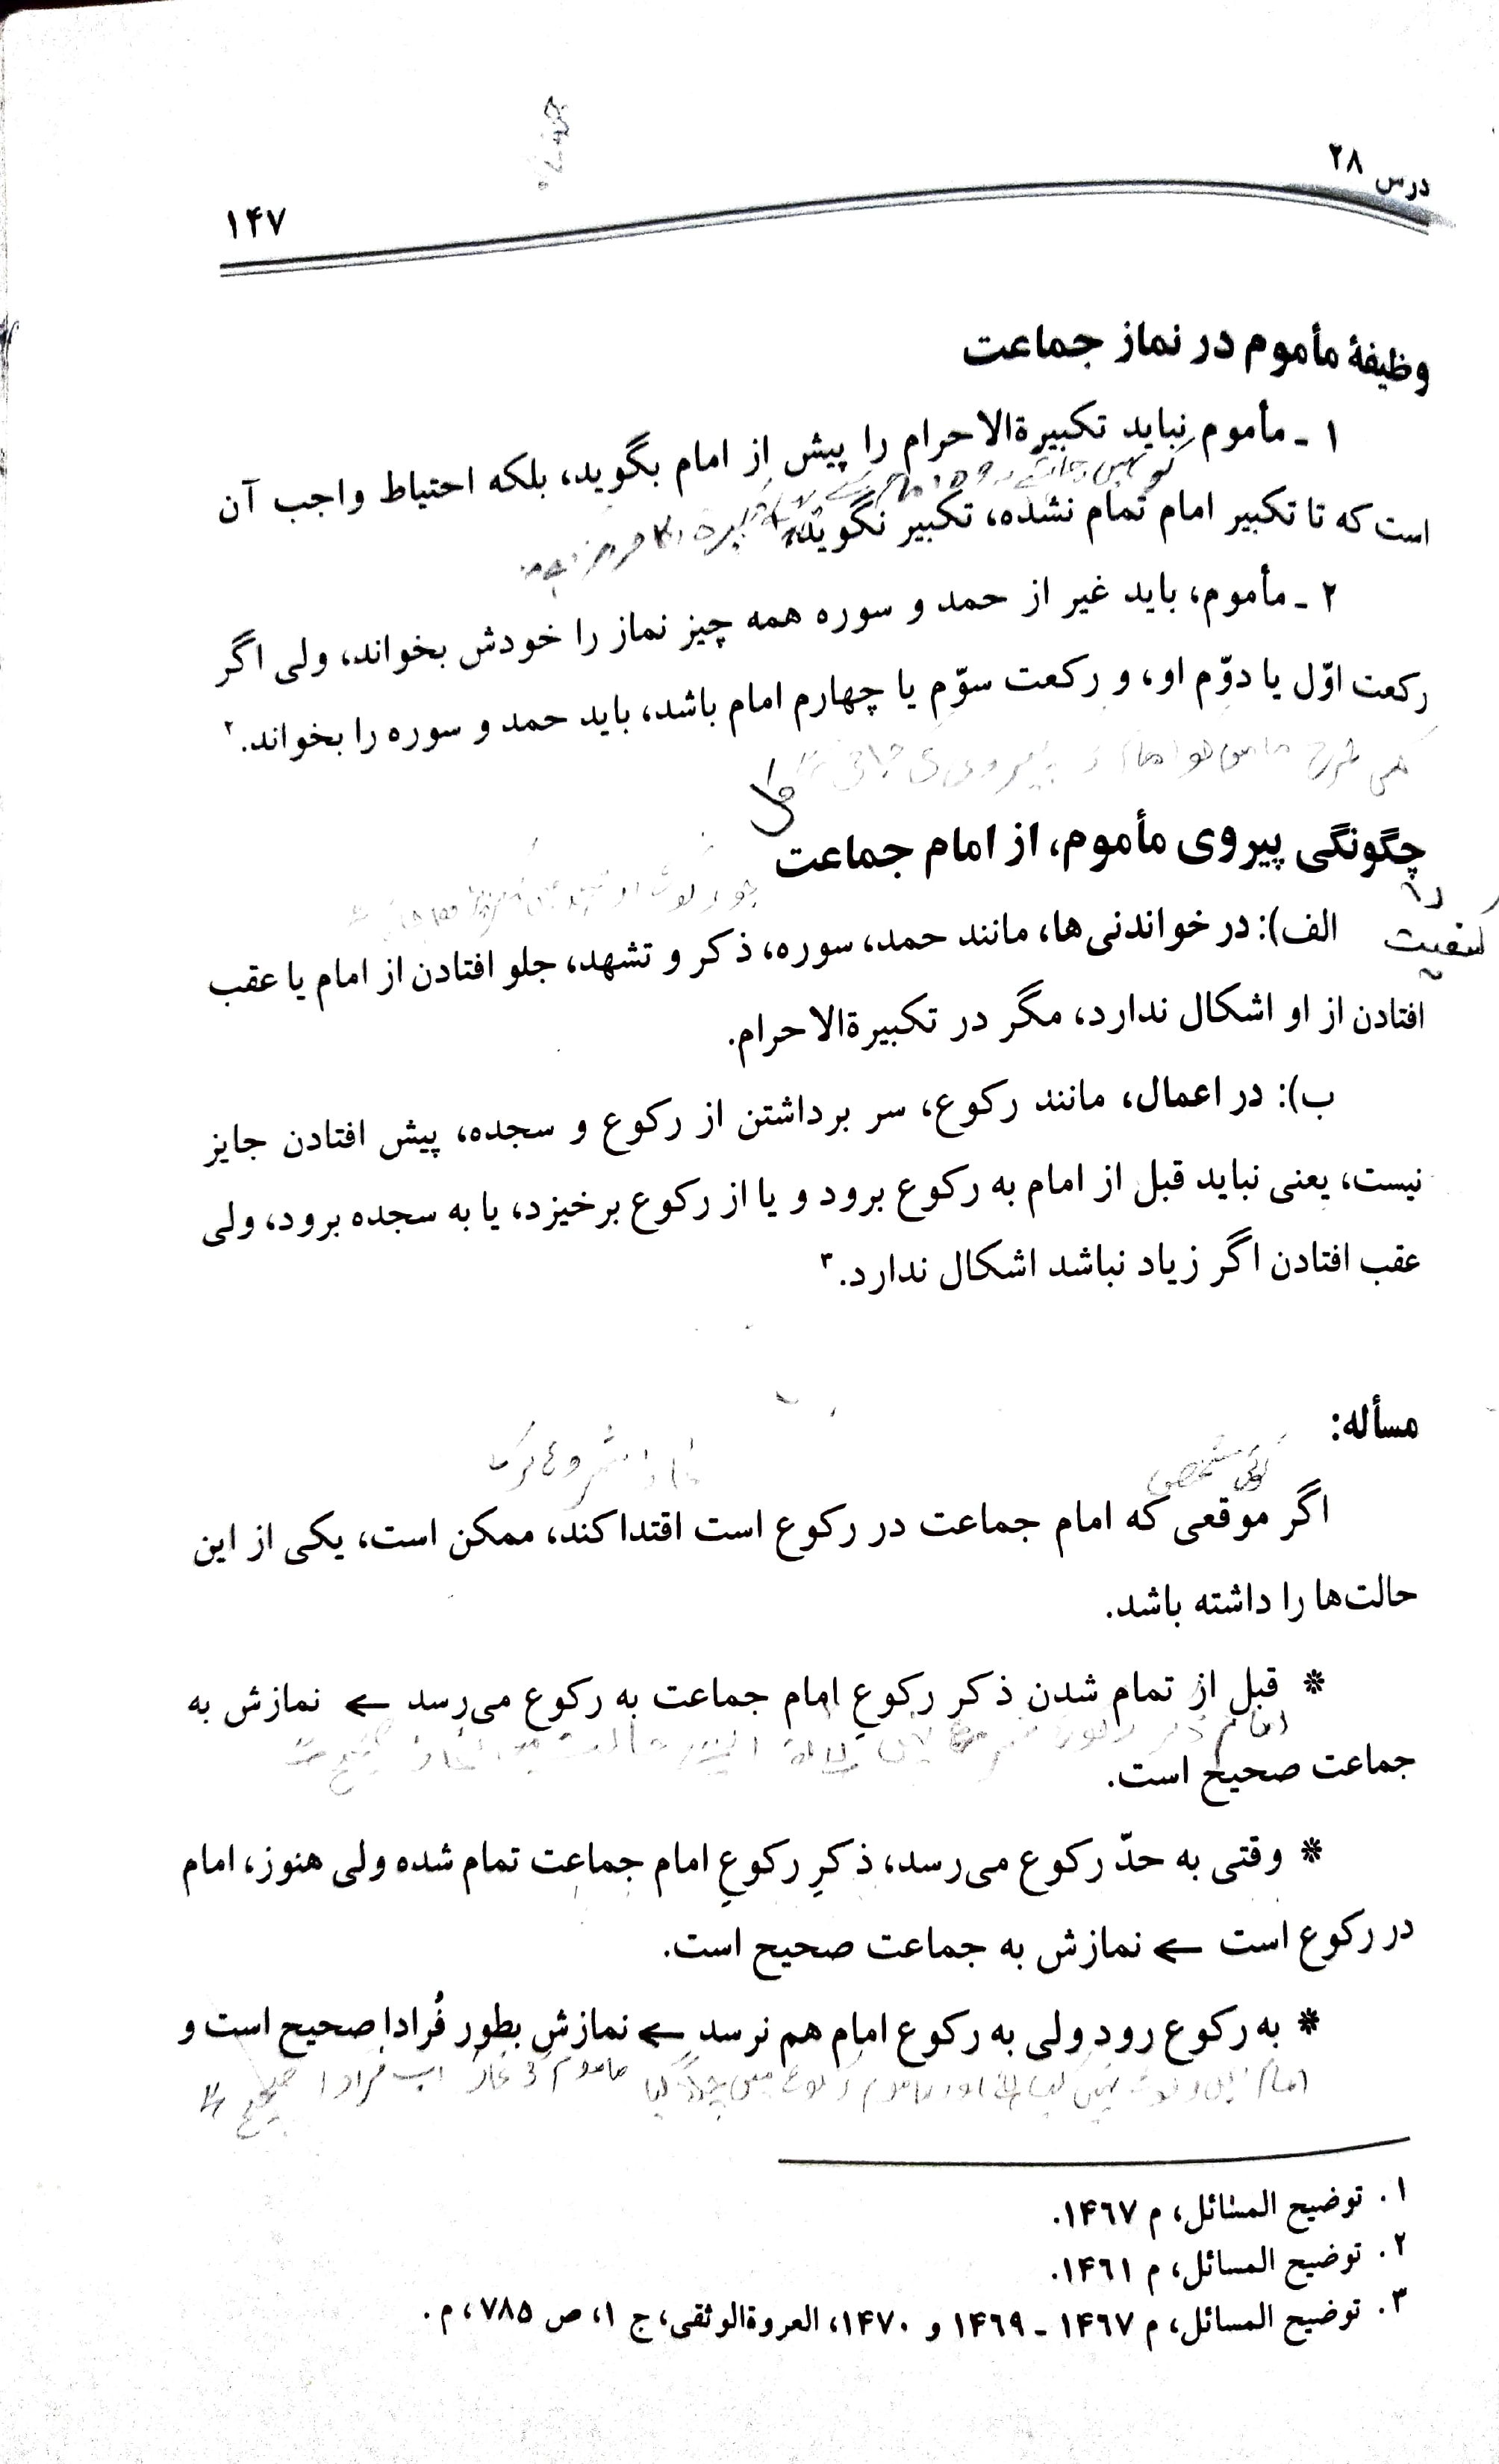 درس ۲۸
۱۴۷
وظیفهٔ مأموم در نماز جماعت
۱ ـ مأموم نباید تکبیرةالاحرام را پیش از امام بگوید، بلکه احتیاط واجب آن
است که تا تکبیر امام تمام نشده، تکبیر نگوید.
۲ ـ مأموم، باید غیر از حمد و سوره همه چیز نماز را خودش بخواند، ولی اگر
رکعت اوّل یا دوّم او، و رکعت سوّم یا چهارم امام باشد، باید حمد و سوره را بخواند.۲
چگونگی پیروی مأموم، از امام جماعت
کیفیت
الف): در خواندنی‌ها، مانند حمد، سوره، ذکر و تشهد، جلو افتادن از امام یا عقب
افتادن از او اشکال ندارد، مگر در تکبیرةالاحرام.
ب): در اعمال، مانند رکوع، سر برداشتن از رکوع و سجده، پیش افتادن جایز
نیست، یعنی نباید قبل از امام به رکوع برود و یا از رکوع برخیزد، یا به سجده برود، ولی
عقب افتادن اگر زیاد نباشد اشکال ندارد.۳
مسأله:
کوئی شخص
اگر موقعی که امام جماعت در رکوع است اقتدا کند، ممکن است، یکی از این
حالت‌ها را داشته باشد.
* قبل از تمام شدن ذکر رکوعِ امام جماعت به رکوع می‌رسد ← نمازش به
جماعت صحیح است.
* وقتی به حدّ رکوع می‌رسد، ذکرِ رکوعِ امام جماعت تمام شده ولی هنوز، امام
در رکوع است ← نمازش به جماعت صحیح است.
* به رکوع رود ولی به رکوع امام هم نرسد ← نمازش بطور فُرادا صحیح است و
۱. توضیح المسائل، م ۱۴٦۷.
۲. توضیح المسائل، م ۱۴٦۱.
۳. توضیح المسائل، م ۱۴٦۷ ـ ۱۴٦۹ و ۱۴۷۰، العروةالوثقی، ج ۱، ص ۷۸۵، م.